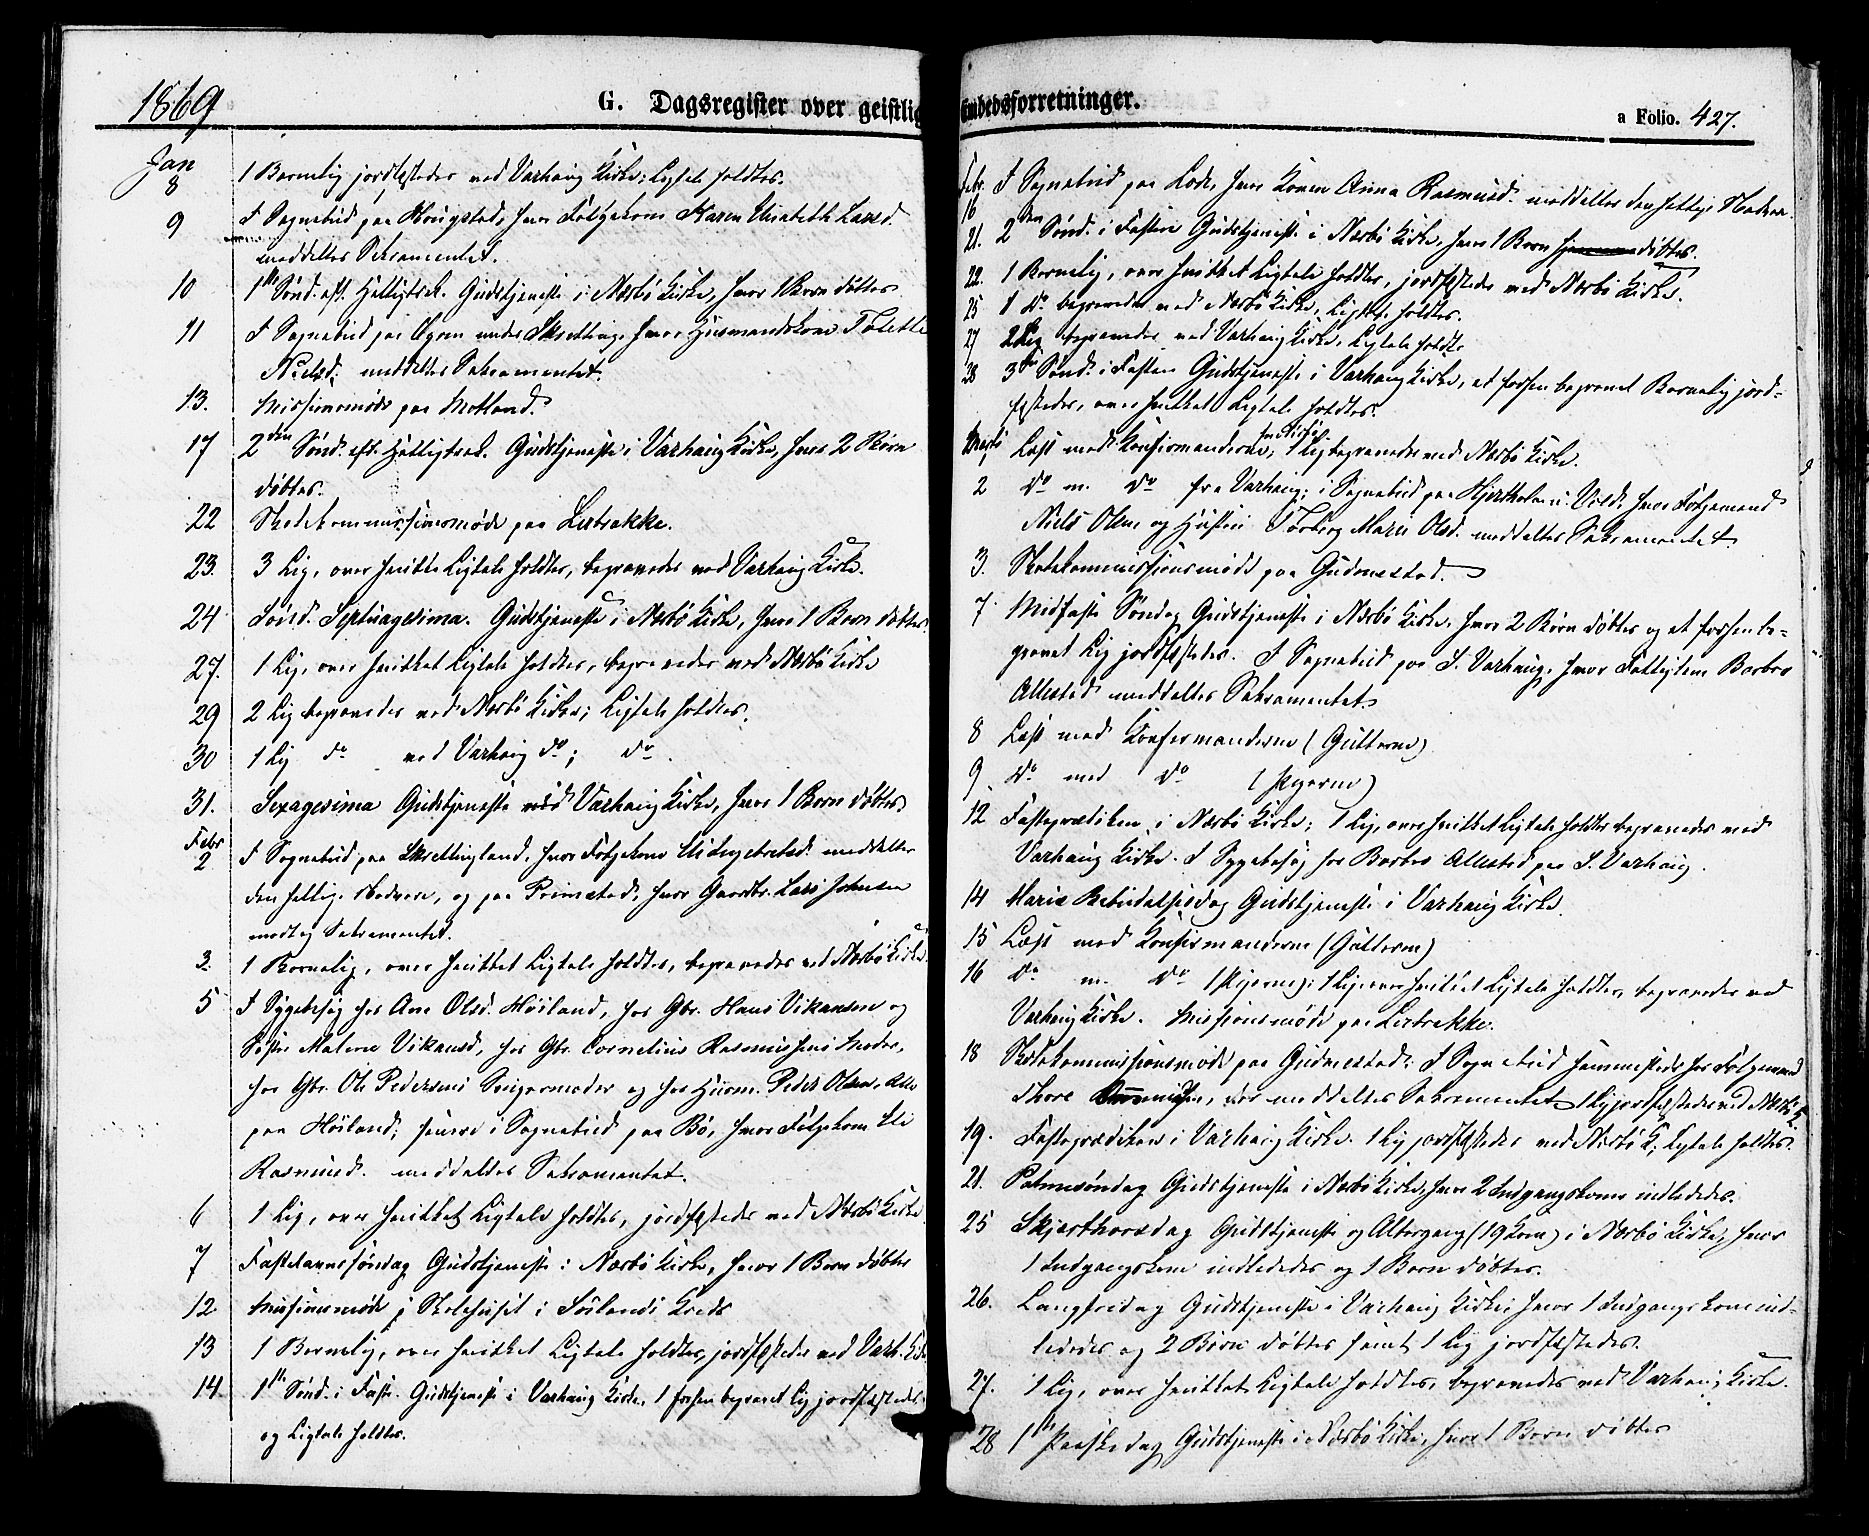 1869
G. Dagsregister over geistlig
Jan
8 1 Barnelig jordfæstedes ved Varhaug Kirke; Ligtale holdtes.
9 I Sognebud paa Haugstad, hvor Føderkone Karen Elisabeth Larsd.
meddeltes Sakramentet.
10 1ste Sønd. eft. Helligtrek. Gudstjeneste i Nærbø Kirke, hvor 1 Barn døbtes
11 I Sognebud paa under Skretting, hvor Husmandskone Tolette
Nielsd. meddeltes Sakramentet.
13. Missionsmøde paa Motland.
17 2den Sønd. eft. Helligtrek. Gudstjeneste i Varhaug Kirke, hvor 2 Børn
døbtes.
22 Skolekommissionsmøde paa Lerbrekke.
23. 3 Lig, over hvilke Ligtale holdtes, begravedes ved Varhaug Kirke.
24 Sønd. Septuagesima. Gudstjeneste i Nærbø Kirke, hvor 1 Barn døbtes.
27. 1 Lig, over hvilket Ligtale holdtes, begravedes ved Nærbø Kirke
29 2 Lig begravedes ved Nærbø Kirke; Ligtale holdtes.
30 1 Lig do ved Varhaug do; do.
31. Sexagesima Gudstjeneste ved Varhaug Kirke, hvor 1 Barn døbtes
Febr
2 I Sognebud paa Skretingland, hvor Følgekone meddeltes
den hellige Nadvere, og paa Primstad, hvor Gaardbr. Lars Johnsen
modtog Sakramentet.
3. 1 Barnelig, over hvilket Ligtale holdtes, begravedes ved Nærbø Kirke
5 I Sygebesøg hos Ane Olsd. Høiland, hos Gbr. Hans Vikansen og
Søster Malene Vikansd., hos Gbr. Cornelius Rasmussens Moder,
hos Gbr. Ole Pedersens Svigermoder og hos Husm. Peder Olsen, Alle
paa Høiland; senere i Sognebud paa Bø, hvor Følgekone Eli
Rasmusd. meddeltes Sakramentet.
6 1 Lig, over hvilket Ligtale holdtes, jordfæstedes ved Nærbø Kirke
7 Fastelavnssøndag Gudstjeneste i Nærbø Kirke, hvor 1 Barn døbtes
12 Missionsmøde i Skolehuset i Kreds
13 1 Barnelig, over hvilket Ligtale holdtes, jordfæstedes ved Varh. Kirke
14 1ste Sønd. i Faste. Gudstjeneste i Varhaug Kirke. 1 forhen begravet Lig jordfæstedes
og Ligtale holdtes.
Embedsforretninger.
a Folio. 427.
Febr.
16 I Sognebud paa Lode, hvor Konen Anna Rasmusd. meddeltes den hellige Nadvere.
21. 2den Sønd. i Fasten Gudstjeneste i Nærbø Kirke, hvor 1 Barn døbtes.
22. 1 Barnelig, over hvilket Ligtale holdtes, jordfæstedes ved Nærbø Kirke.
25 1 do begravedes ved Nærbø Kirke, Ligtale holdtes.
27 2 Lig begravedes ved Varhaug Kirke, Ligtale holdtes
28 3die Sønd. i Fasten Gudstjeneste i Varhaug Kirke, et forhen begravet Barnelig jord-
fæstedes, over hvilket Ligtale holdtes.
Marts
1 Læst med Konfirmanderne fra Nærbø; 1 Lig begravedes ved Nærbø Kirke.
2 do m. do fra Varhaug; i Sognebud paa Hjertholm u. Vold, hvor Følgemand
Niels Olsen og Hustru Torborg Marie Olsd. meddeltes Sakramentet.
3. Skolekommissionsmøde paa Gudmestad.
7. Midfaste Søndag Gudstjeneste i Nærbø Kirke, hvor 2 Børn døbtes og et forhen be-
gravet Lig jordfæstedes. I Sognebud paa S. Varhaug, hvor Fattiglem Barbro
Allestad meddeltes Sakramentet.
8 Læst med Konfirmanderne (Gutterne)
9. do med do (Pigerne)
12 Fasteprædiken i Nærbø Kirke; 1 Lig, over hvilket Ligtale holdtes begravedes ved
Varhaug Kirke. I Sygebesøg hos Barbro Allestad paa S. Varhaug.
14 Mariæ Bebudelsesdag Gudstjeneste i Varhaug Kirke.
15 Læst med Konfirmanderne (Gutterne)
16 do m. do (Pigerne); 1 Lig, over hvilket Ligtale holdtes, begravedes ved
Varhaug Kirke. Missionsmøde paa Lerbrekke.
18 Skolekommissionsmøde paa Gudmestad; I Sognebud sammesteds hos Følgemand
Thore, der meddeltes Sakramentet 1 Lig jordfæstedes ved Nærbø K.
19. Fasteprædiken i Varhaug Kirke. 1 Lig jordfæstedes ved Nærbø K; Ligtale holdtes.
21. Palmesøndag Gudstjeneste i Nærbø Kirke, hvor 2 Indgangskoner indlededes.
25 Skjærthorsdag Gudstjeneste og Altergang (19 Kom) i Nærbø Kirke, hvor
1 Indgangskone indlededes og 1 Barn døbtes.
26. Langfredag Gudstjeneste i Varhaug Kirke, hvor 1 Indgangskone ind-
lededes og 2 Børn døbtes samt 1 Lig jordfæstedes.
27. 1 Lig, over hvilket Ligtale holdtes, begravedes ved Varhaug Kirke.
28 1ste Paaskedag Gudstjeneste i Nærbø Kirke, hvor 1 Barn døbtes